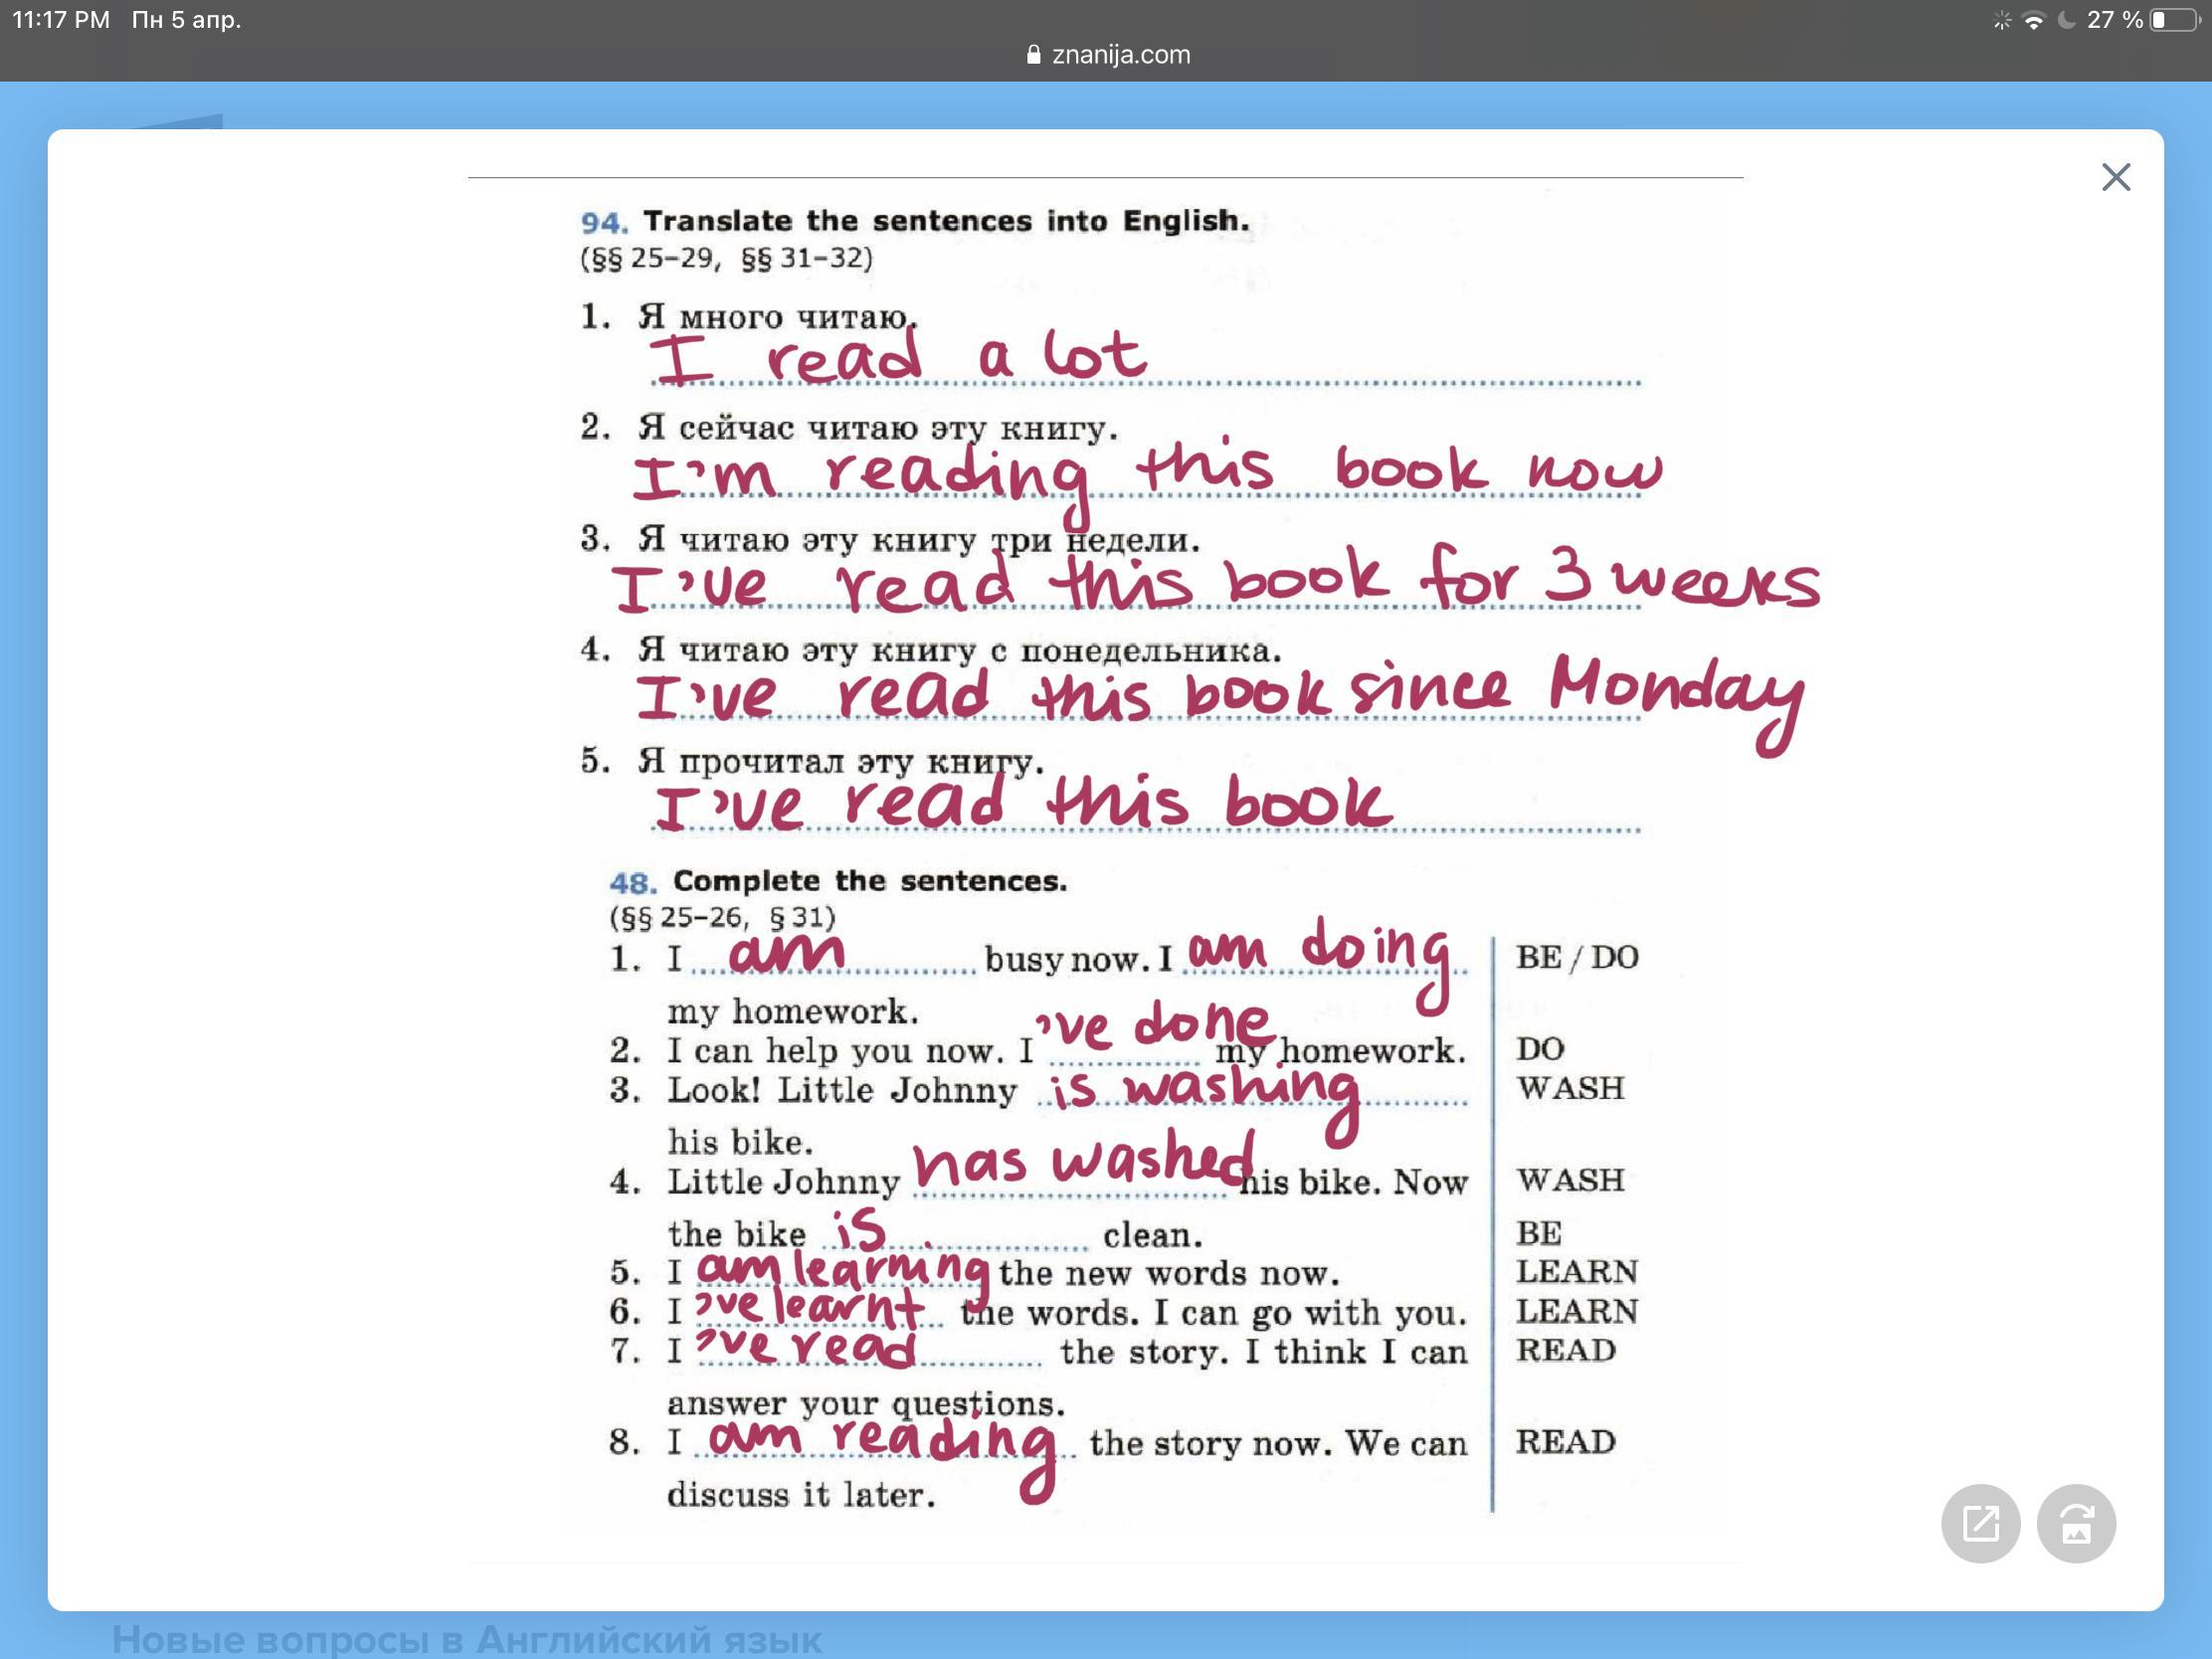 11:17 PM Пн 5 апр.
27 %
znanija.com
94. Translate the sentences into English.
(§§ 25–29, §§ 31–32)
1. Я много читаю.
I read a lot
2. Я сейчас читаю эту книгу.
I'm reading this book now
3. Я читаю эту книгу три недели.
I've read this book for 3 weeks
4. Я читаю эту книгу с понедельника.
I've read this book since Monday
5. Я прочитал эту книгу.
I've read this book
48. Complete the sentences.
(§§ 25–26, § 31)
1. I am busy now. I am doing BE / DO
my homework.
2. I can help you now. I 've done my homework. DO
3. Look! Little Johnny is washing WASH
his bike.
4. Little Johnny has washed his bike. Now WASH
the bike is clean. BE
5. I am learning the new words now. LEARN
6. I 've learnt the words. I can go with you. LEARN
7. I 've read the story. I think I can READ
answer your questions.
8. I am reading the story now. We can READ
discuss it later.
Новые вопросы в Английский язык